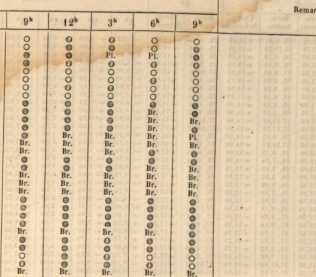 Remar
9h 12h 3h 6h 9h
Pl. Pl.
Br.
Br. Br.
Br.
Br. Br. Br. Pl.
Br. Br. Br. Br. Br.
Br. Br. Br.
Br. Br. Br. Br. Br.
Br. Br. Br. Br. Br.
Br. Br. Br. Br. Br.
Br. Br. Br. Br.
Br. Br. Br. Br. Br.